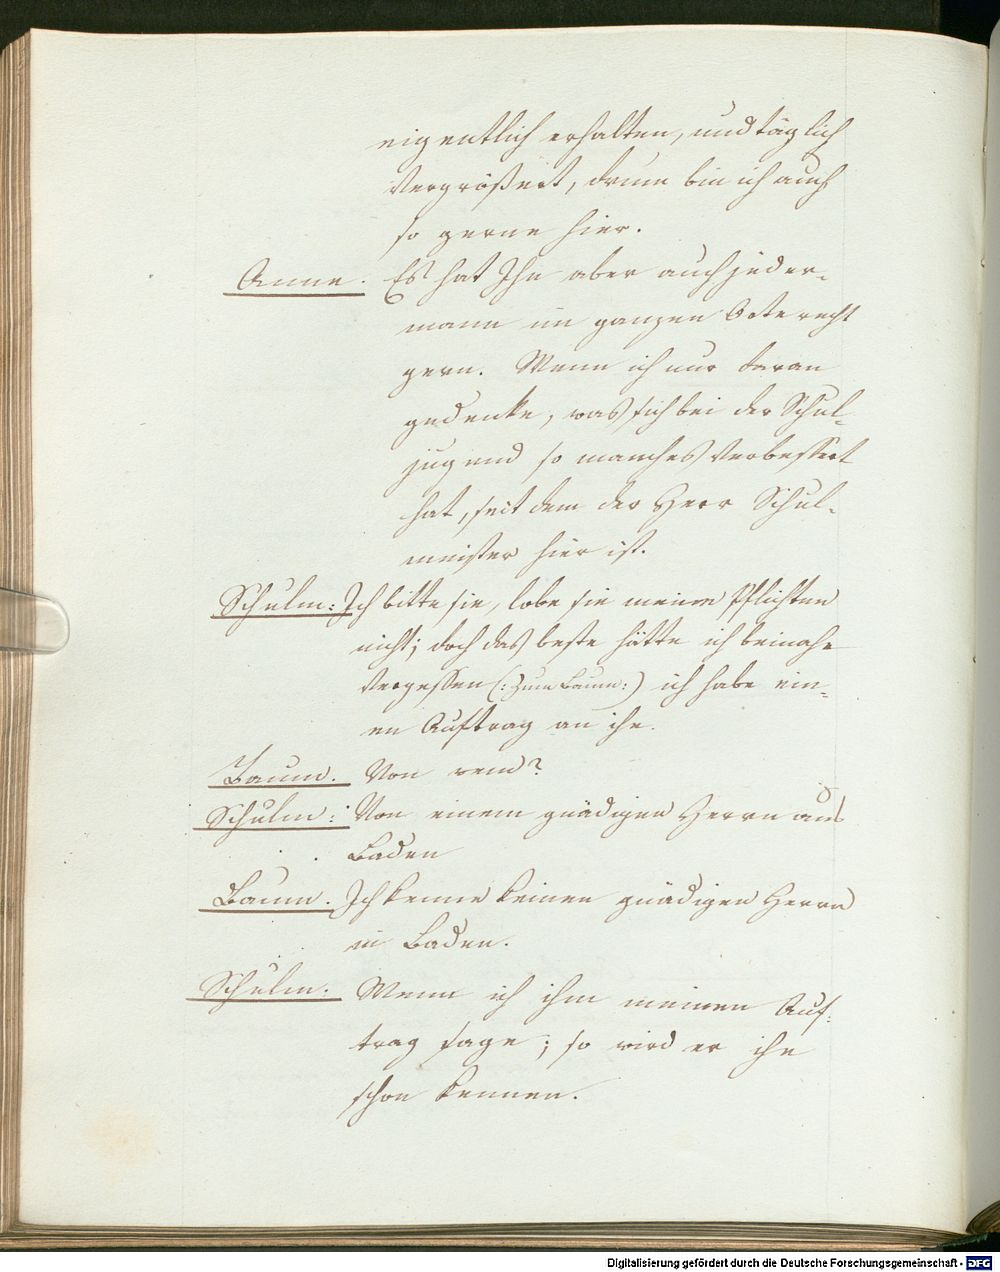 eigentlich erhalten, und täglich
Vergrößert, drum bin ich auch
so gerne hier.
Anne. Es hat Ihn aber auch jeder-
mann im ganzen Orte recht
gern. Wenn ich nur daran
gedenke, was sich bei der Schul-
jugend so manches Verbessert
hat, seit dem der Herr Schul-
meister hier ist.
Schulm: Ich bitte sie, lobe sie meine Pflichten
nicht; doch das beste hätte ich beinahe
Vergessen (: zum Baum :) ich habe ein-
en Auftrag an ihn.
Baum. Von wem?
Schulm: Von einem gnädigen Herrn aus
Baden
Baum. Ich kenne keinen gnädigen Herrn
in Baden.
Schulm: Wenn ich ihm meinen Auf-
trag sage; so wird er ihn
schon kennen.
Digitalisierung gefördert durch die Deutsche Forschungsgemeinschaft - DFG